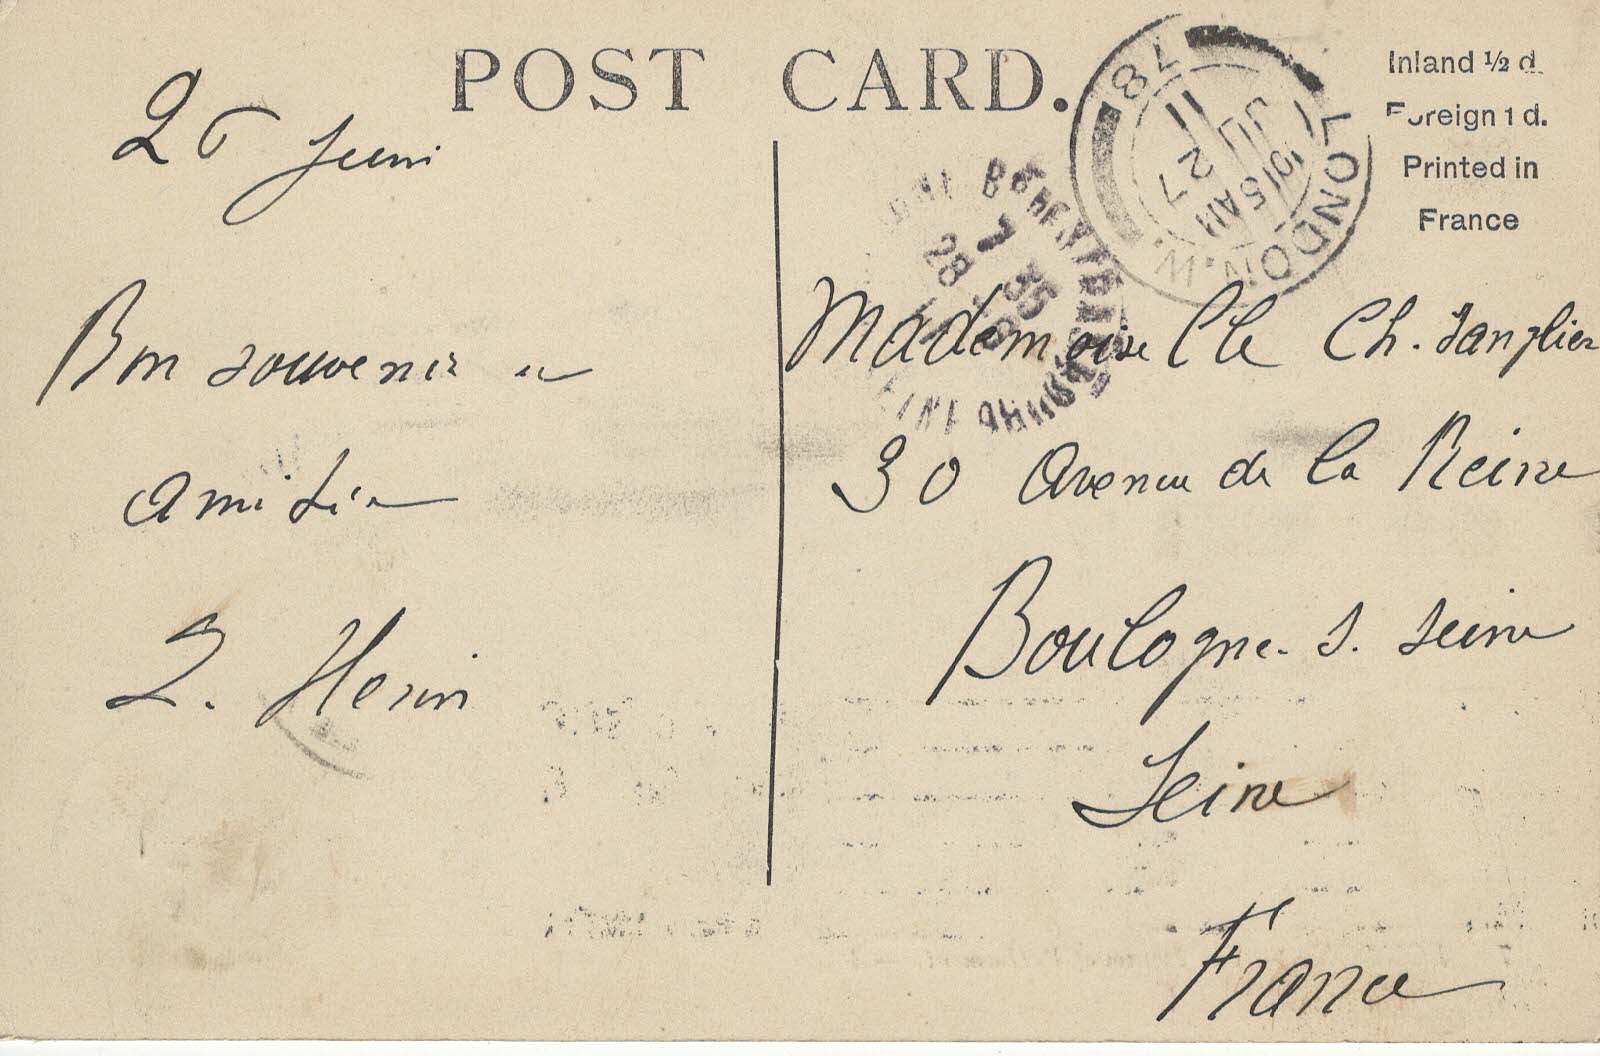 POST CARD.
Inland ½ d.
Foreign 1 d.
Printed in
France
LONDON.W.
78
10 15 AM
JU 27
11
7 35
28
26 Juin
Bon souvenir et
amitié
L. Henin
Mademoiselle Ch. Sanglier
30 Avenue de la Reine
Boulogne. S. Seine
Seine
France